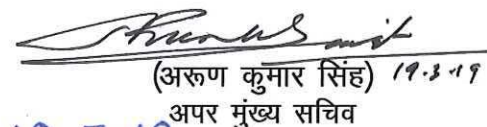 (अरूण कुमार सिंह) 19.3.19
अपर मुंख्य सचिव